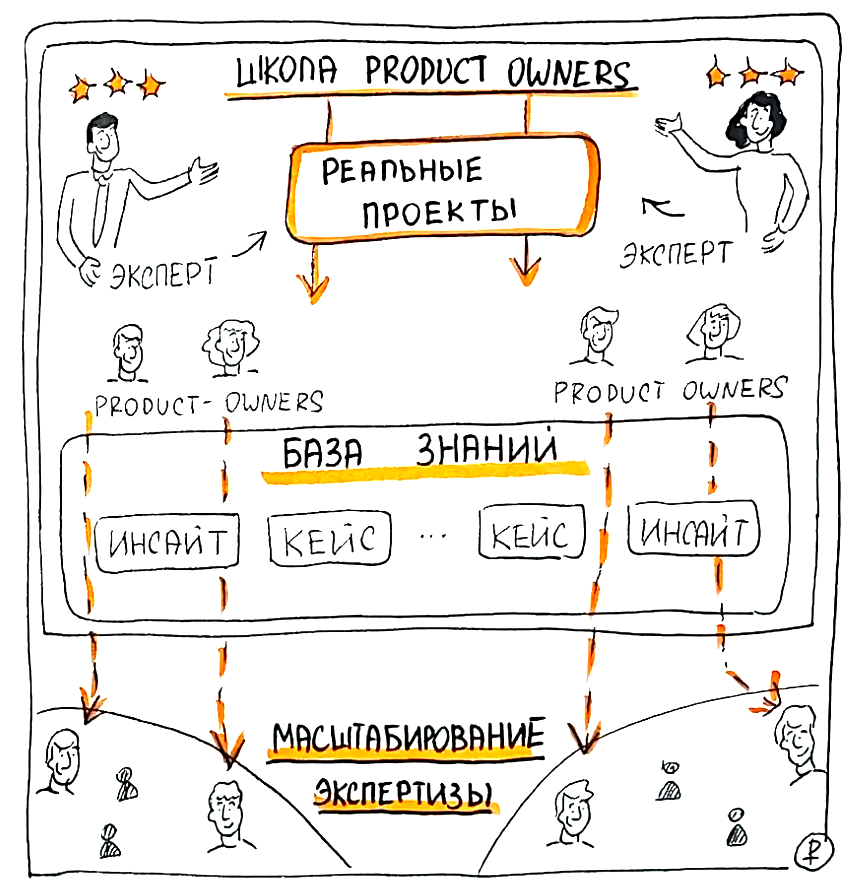 ШКОЛА PRODUCT OWNERS
РЕАЛЬНЫЕ
ПРОЕКТЫ
ЭКСПЕРТ
ЭКСПЕРТ
PRODUCT-OWNERS
PRODUCT OWNERS
БАЗА ЗНАНИЙ
ИНСАЙТ
КЕЙС
...
КЕЙС
ИНСАЙТ
МАСШТАБИРОВАНИЕ
ЭКСПЕРТИЗЫ
₽